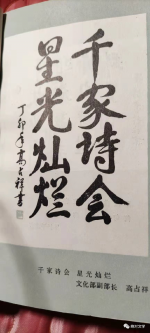 千家诗会
星光灿烂
丁卯年高占祥书
千家诗会 星光灿烂
文化部副部长 高占祥